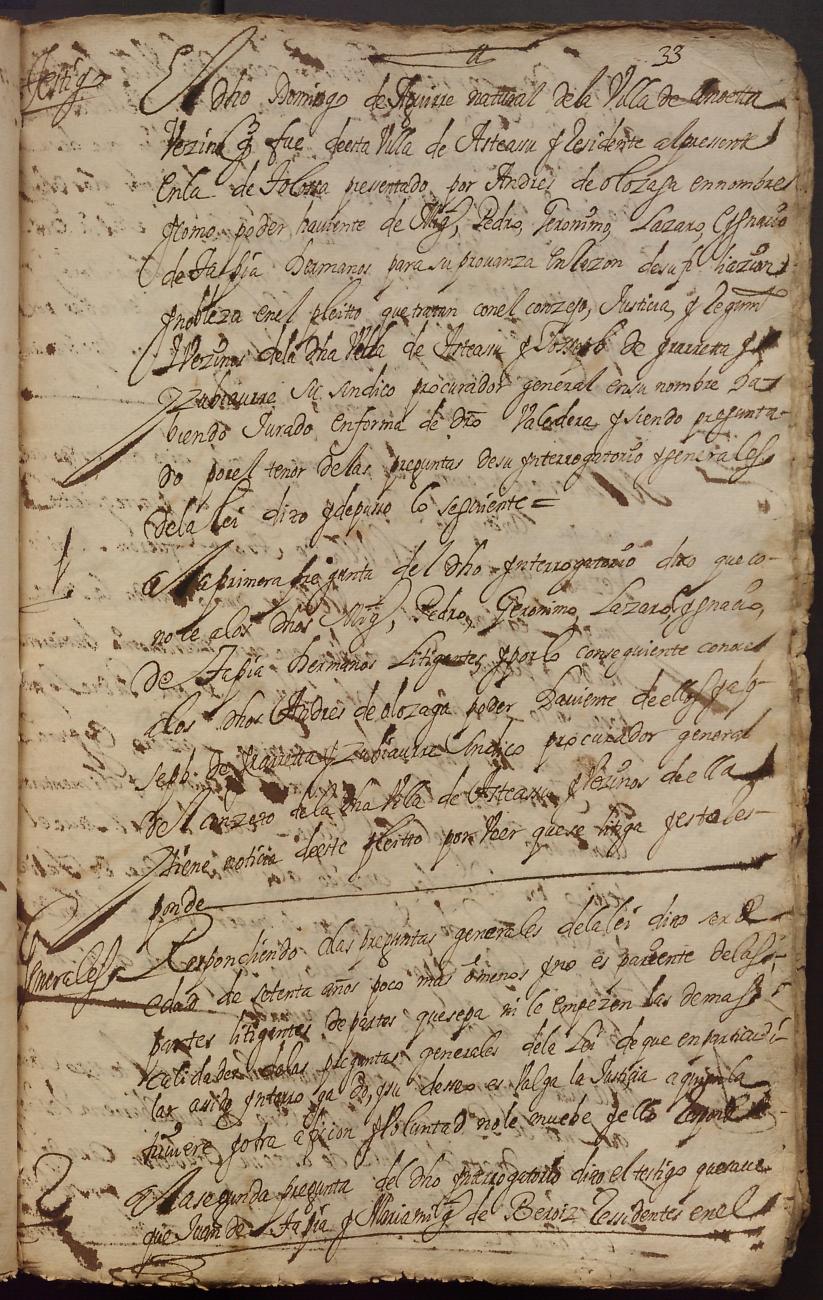 33
testigo
El dho Domingo de Aguirre natural dela Villa de anoeta
Vezino q fue deesta Villa de Asteasu y Residente alpresente
enla de Tolosa presentado por Andres de olozaga ennombre
y como poder haviente de Migl, Pedro, Geronimo, Lazaro, Eygnacio
de Tapia hermanos para su provanza en Razon desu filiazion
y nobleza enel pleitto que tratan conel conzejo, Justicia, y Regimto
y Vezinos dela dha Villa de Asteasu y Joseph de yrarreta y
Zubiaurre su sindico procurador general en su nombre ha
biendo Jurado enforma de dro Valedera y siendo pregunta-
do porel tenor delas preguntas desu ynterrogatorio y generales
dela lei dixo y depuso lo seguiente =
1
Ala primera pregunta del dho ynterrogatorio dixo queco-
noce alos dhos Migl, Pedro, Geronimo, Lazaro, Eygnacio,
de Tapia hermanos Litigantes, y porlo conseguiente conoce
alos dhos Andres de olozaga poder haviente deellos y a Jo-
seph de yrarreta y Zubiaurre Sindico procurador general
del conzejo dela dha Villa de Asteasu y Vezinos de ella
y tiene noticia deeste pleitto por Veer quese litiga y esto res-
ponde
Generales
Respondiendo alas preguntas generales dela lei dixo ser de
edad de setenta años poco mas o menos y no es pariente delas
partes litigantes de partes quesepa ni le empezen las demas
calidades delas preguntas generales dela Lei deque en particu-
lar a sido ynterrogado, y su deseo es Valga la Justicia a quien la
tuviere y otra aficion y Voluntad nole muebe y ello Responde
2
Ala segunda pregunta del dho ynterrogatorio dixo el testigo quesave
que Juan de Tapia y Maria migl de Beroiz Residentes enel